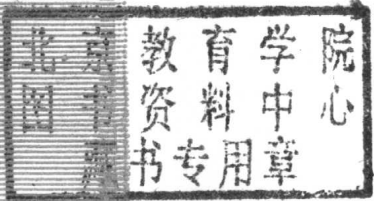 北京教育学院
图书资料中心
藏书专用章